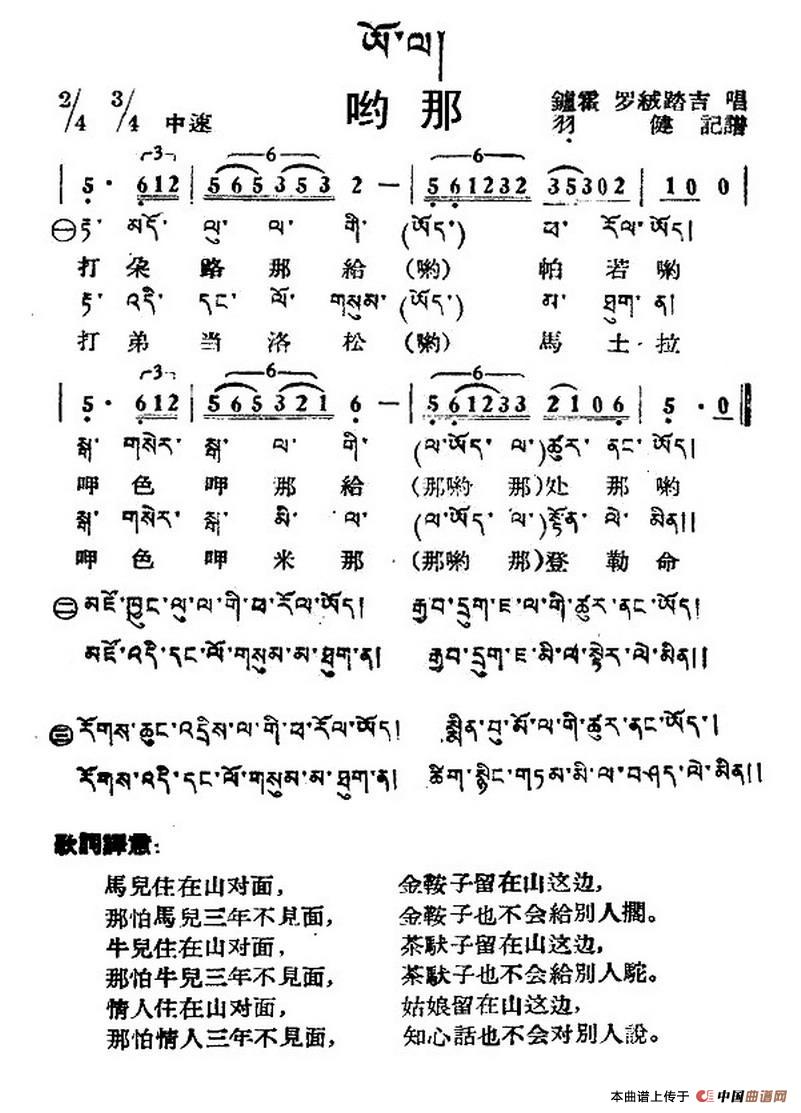 ཨོ་ལ།
哟那
2/4 3/4 中速 鑪霍 罗绒踏吉 唱
羽 健 記譜
3 6 6
5· 612 565353 2 — 561232 35302 100
㊀ རྟ་ མདོ་ ལུ་ ལ་ གི་ (ཨོད་) ཕ་ རོལ་ཨོད།
打 朶 路 那 給 (喲) 帕 若 喲
རྟ་ འདི་ དང་ ལོ་ གསུམ་ (ཨོད་) མ་ ཐུག་ ན།
打 弟 当 洛 松 (喲) 馬 土 拉
3 6 6
5· 612 565321 6 — 561233 2106 5·0
སྒ་ གསེར་ སྒ་ ལ་ གི་ (ལ་ཨོད་ ལ་) ཚུར་ ནང་ ཨོད།
呷 色 呷 那 給 (那喲 那) 处 那 喲
སྒ་ གསེར་ སྒ་ མི་ ལ་ (ལ་ཨོད་ ལ་) སྟོན་ ལེ་ མིན།།
呷 色 呷 米 那 (那喲 那) 登 勒 命
㊁ མཛོ་ཁྱུང་ལུ་ལ་གི་ཕ་རོལ་ཨོད། རྒྱབ་དྲུག་ཇ་ལ་གི་ཚུར་ནང་ཨོད།
མཛོ་འདི་དང་ལོ་གསུམ་མ་ཐུག་ན། རྒྱབ་དྲུག་ཇ་མི་ལ་སྟེར་ལེ་མིན།།
㊂ རོགས་ཆུང་འདྲིས་ལ་གི་ཕ་རོལ་ཨོད། སྨིན་བུ་མོ་ལ་གི་ཚུར་ནང་ཨོད་།
རོགས་འདི་དང་ལོ་གསུམ་མ་ཐུག་ན། ཚིག་སྙིང་གཏམ་མི་ལ་བཤད་ལེ་མིན།།
歌詞譯意:
馬兒住在山对面， 金鞍子留在山这边，
那怕馬兒三年不見面， 金鞍子也不会給別人擱。
牛兒住在山对面， 茶馱子留在山这边，
那怕牛兒三年不見面， 茶馱子也不会給別人駝。
情人住在山对面， 姑娘留在山这边，
那怕情人三年不見面， 知心話也不会对別人說。
本曲谱上传于 中国曲谱网